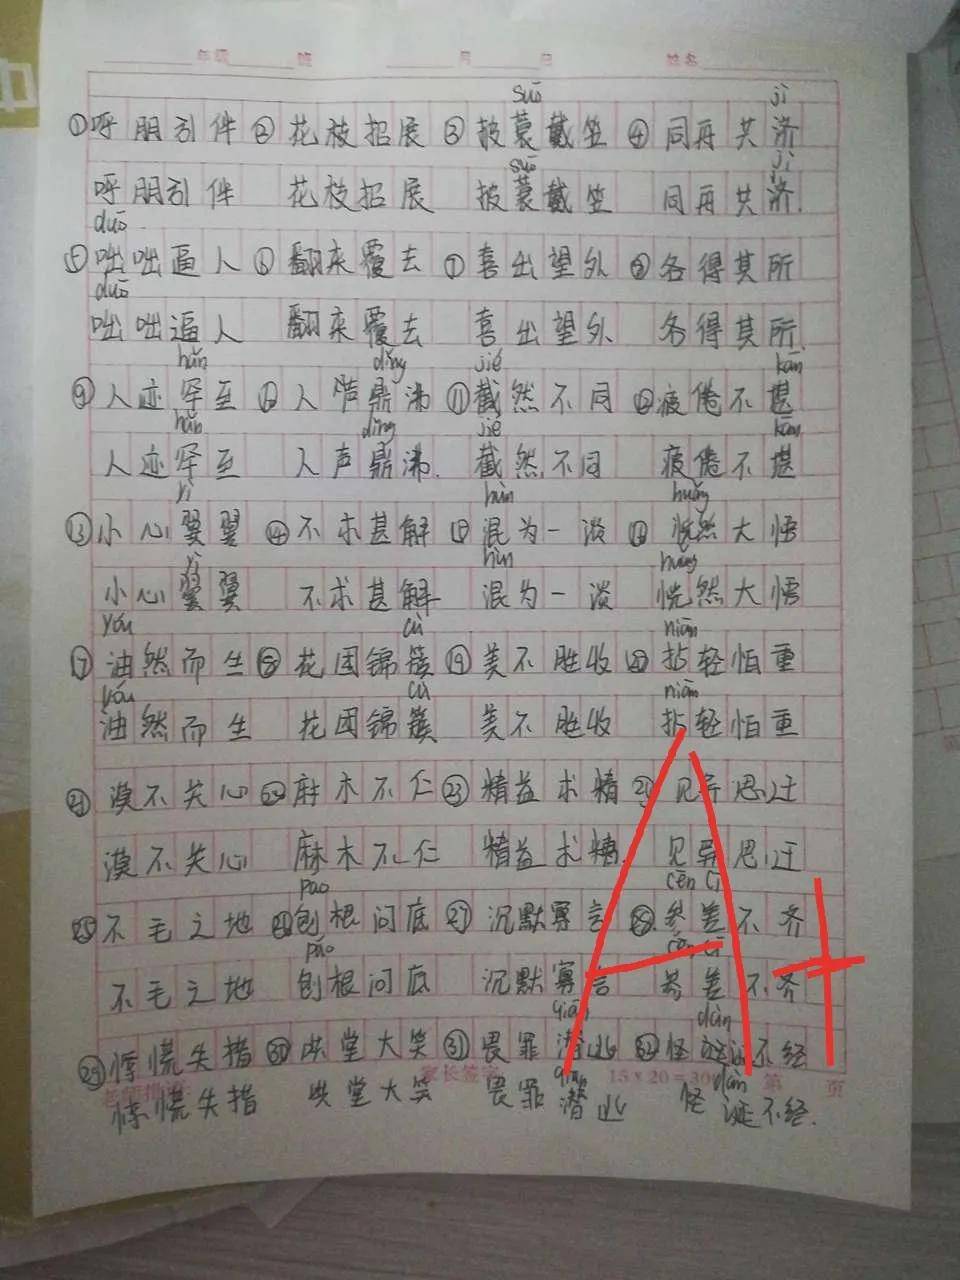 年级 班 月 日 姓名
suō jì
①呼朋引伴 ②花枝招展 ③披蓑戴笠 ④同舟共济
suō jì
呼朋引伴 花枝招展 披蓑戴笠 同舟共济.
duō
⑤咄咄逼人 ⑥翻来覆去 ⑦喜出望外 ⑧各得其所
duō
咄咄逼人 翻来覆去 喜出望外 各得其所.
hǎn dǐng jié kān
⑨人迹罕至 ⑩人声鼎沸 ⑪截然不同 ⑫疲倦不堪
hǎn dǐng jié kān
人迹罕至 人声鼎沸. 截然不同 疲倦不堪
yì hùn huǎng
⑬小心翼翼 ⑭不求甚解 ⑮混为一谈 ⑯恍然大悟
yì hùn huǎng
小心翼翼 不求甚解 混为一谈 恍然大悟
yóu cù niān
⑰油然而生 ⑱花团锦簇 ⑲美不胜收 ⑳拈轻怕重
yóu cù niān
油然而生 花团锦簇 美不胜收 拈轻怕重
㉑漠不关心 ㉒麻木不仁 ㉓精益求精 ㉔见异思迁
漠不关心 麻木不仁 精益求精. 见异思迁
páo cēn cī
㉕不毛之地 ㉖刨根问底 ㉗沉默寡言 ㉘参差不齐
páo cēn cī
不毛之地 刨根问底 沉默寡言 参差不齐
qián dàn
㉙惊慌失措 ㉚哄堂大笑 ㉛畏罪潜逃 ㉜怪诞不经
老师批语: 家长签字 15×20=300 第 页
qián dàn
惊慌失措 哄堂大笑 畏罪潜逃 怪诞不经.
A+